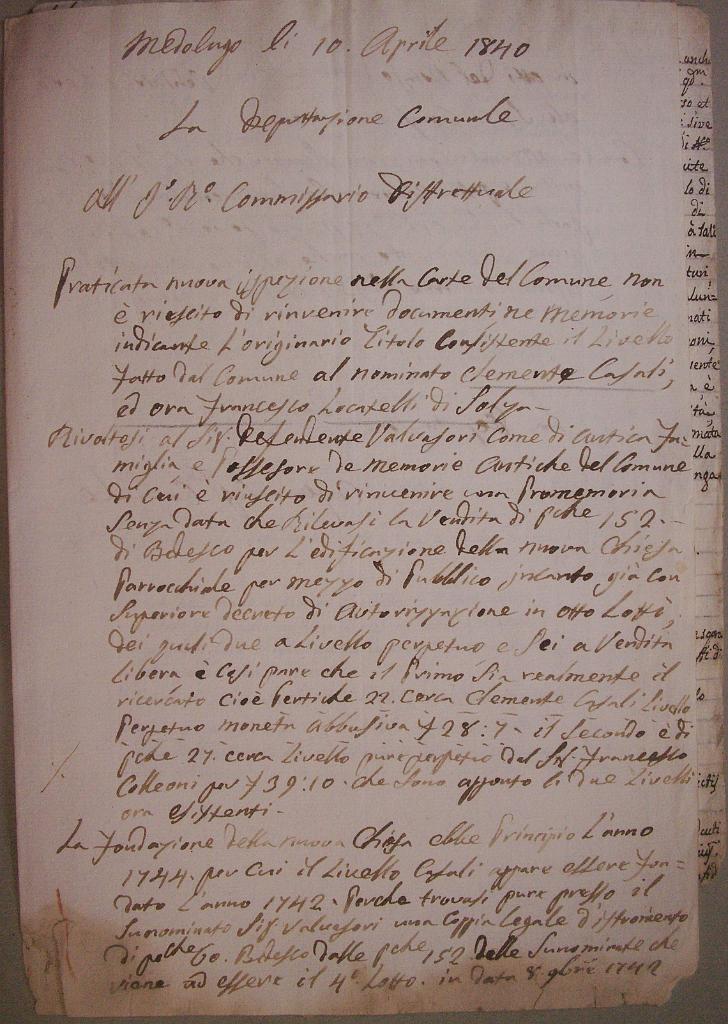 Medolago li 10. Aprile 1840
La Deputazione Comunale
all' J.º R.º Commissario Distrettuale
Praticata nuova ispezione nella Carte del Comune non
è riescito di rinvenire documenti ne memorie
indicante L'originario Titolo Consistente il Livello
fatto dal Comune al nominato Clemente Casali,
ed ora Francesco Locatelli di Solza-
Rivoltosi al Sig.r Defendente Valvasori Come di Antica Fa=
miglia e Possessore de memorie Antiche del Comune
di Cui è riuscito di rinvenire una Promemoria
Senza data che Rilevasi la Vendita di pche 152.-
di Bedesco per L'edificazione della nuova Chiesa
Parrocchiale per mezzo di Pubblico incanto già con
Superiore decreto di Autorizzazione in otto Lotti,
dei quali due a Livello perpetuo e Sei a Vendita
libera è Così pare che il Primo Sia realmente il
ricercato cioè Pertiche 22. Cerca Clemente Casali Livello
Perpetuo moneta Abbusiva £ 28:7- il Secondo è di
pche 27. cerca Livello pure perpetuo dal Sig.r Francesco
Colleoni per £ 39:10. che Sono appunto li due Livelli
ora esistenti-
La Fondazione della nuova Chiesa ebbe Principio L'anno
1744. per Cui il Livello Casali appare essere Fon=
dato L'anno 1742. Perche trovasi pure presso il
Sunominato Sig.r Valvasori una Coppia Legale d'istromento
di pche 60. Bedesco dalle pche 152 delle Sunominate che
viene ad essere il 4º Lotto. in data 8 9bre 1742